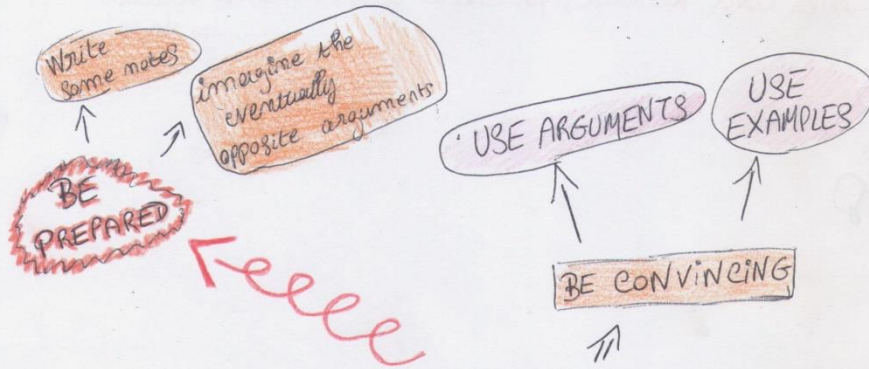 Write
some notes
imagine the
eventually
opposite arguments
BE
PREPARED
USE ARGUMENTS
USE
EXAMPLES
BE CONVINCING